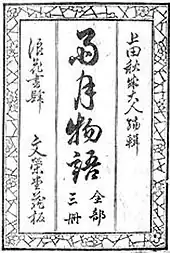 上田秋成大人編輯
雨月物語
全部
三冊
浪花書肆 文榮堂蔵板